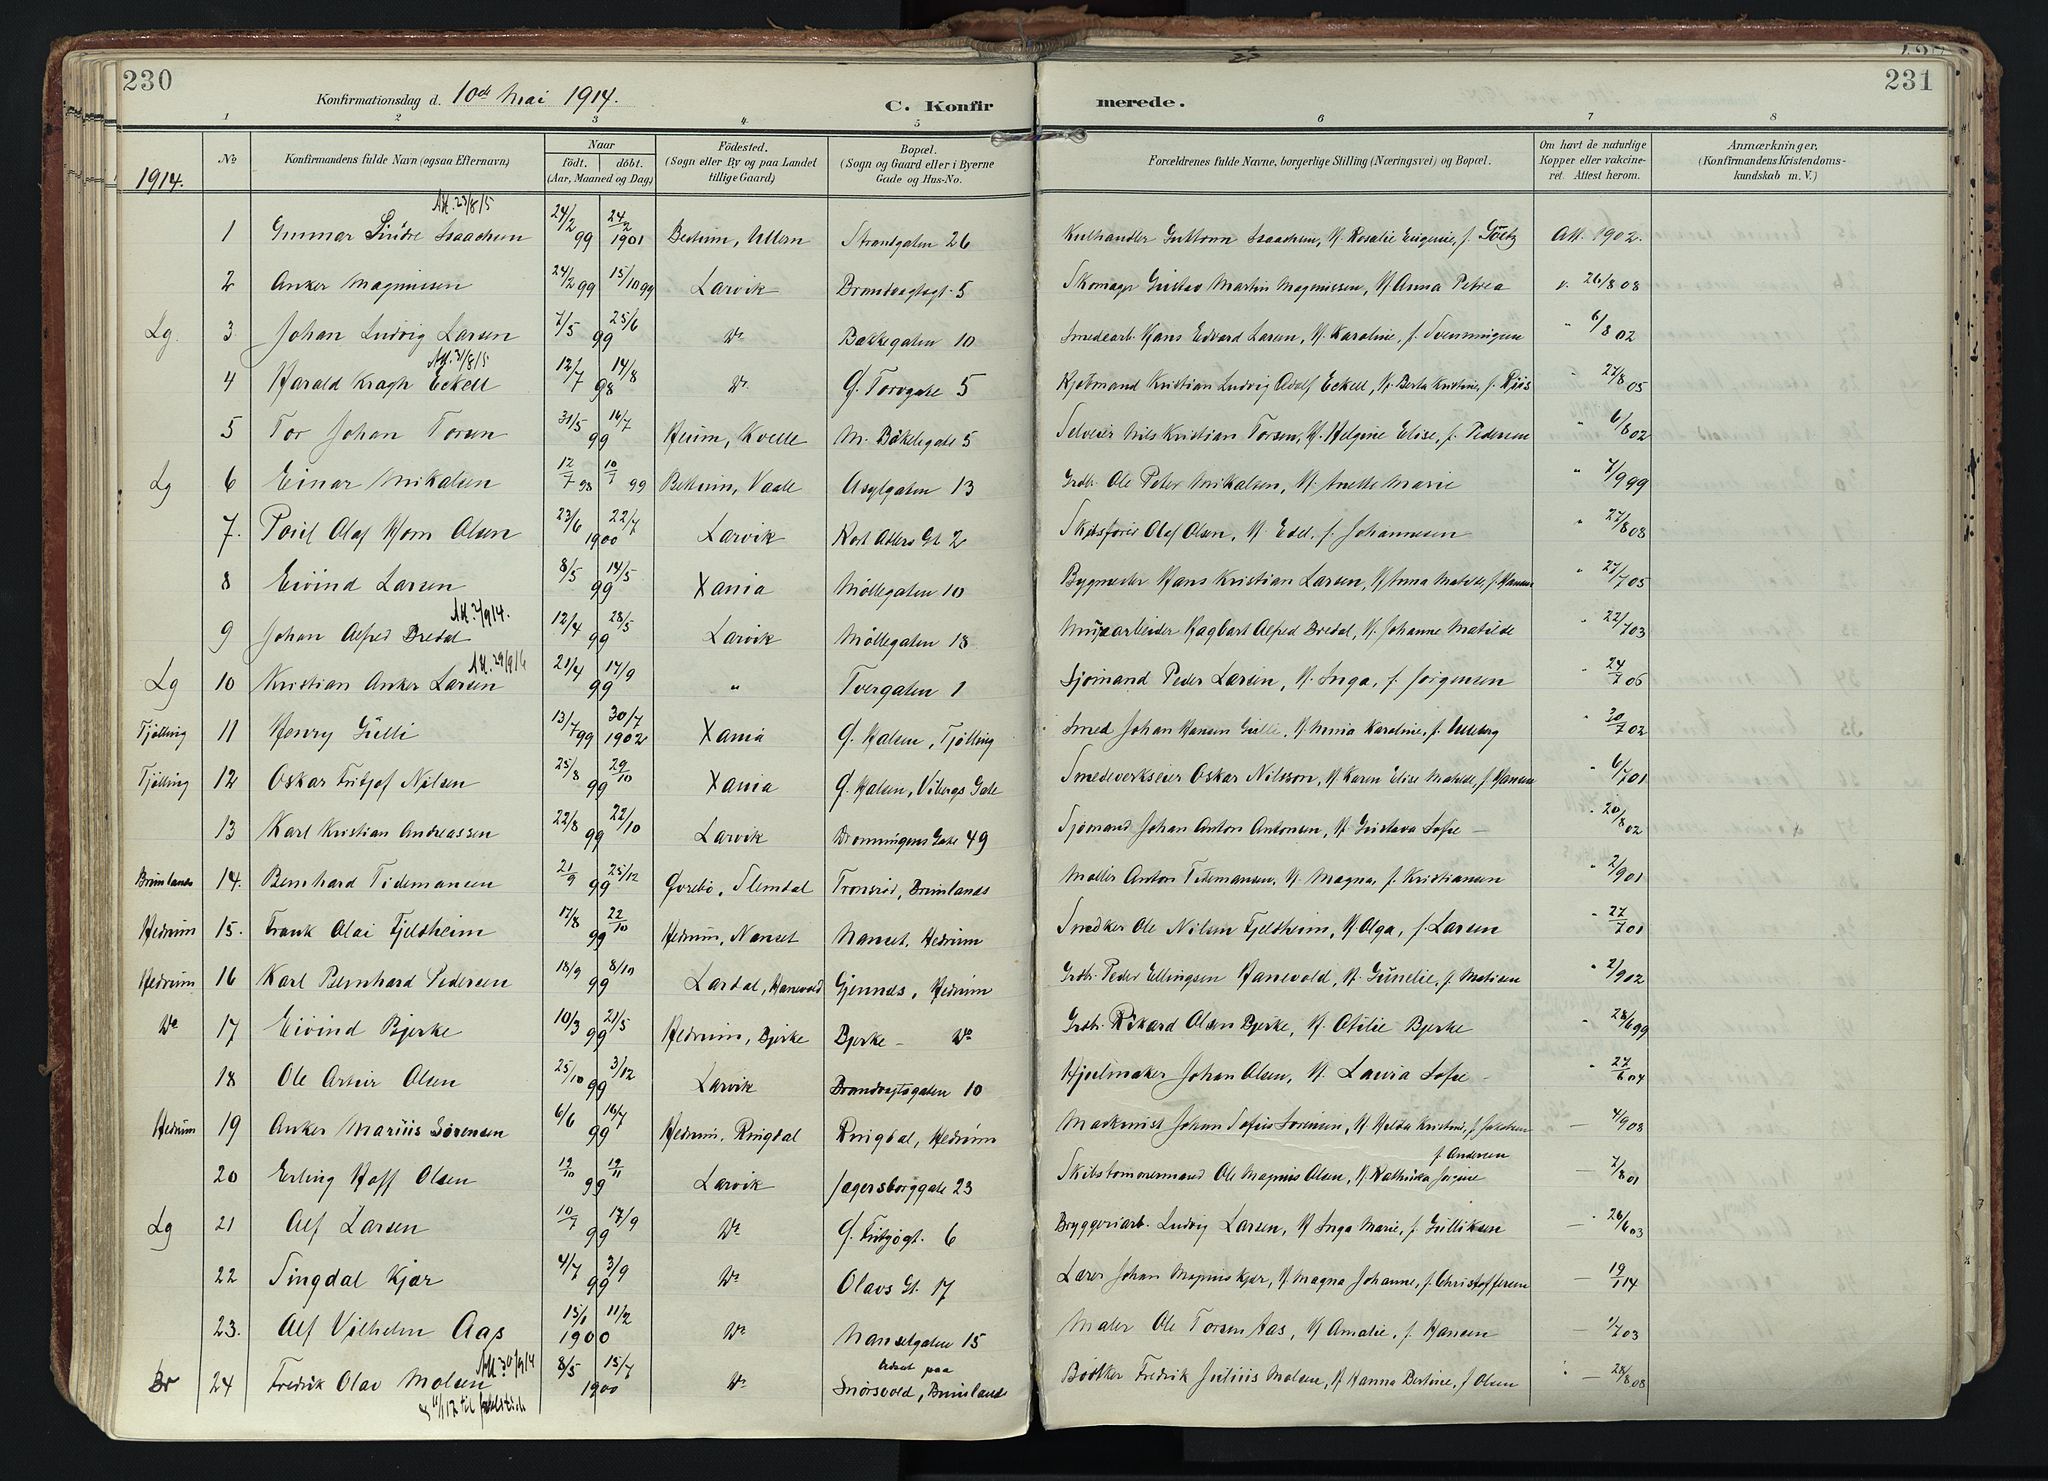 230
Konfirmationsdag d. 10de Mai 1914.
C. Konfirmerede.
231
1 2 3 4 5 6 7 8
No
Konfirmandens fulde Navn (ogsaa Efternavn)
Naar født. døbt. (Aar, Maaned og Dag)
Fødested. (Sogn eller By og paa Landet tillige Gaard)
Bopæl. (Sogn og Gaard eller i Byerne Gade og Hus-No.
Forældrenes fulde Navne, borgerlige Stilling (Næringsvei) og Bopæl.
Om havt de naturlige Kopper eller vakcineret. Attest herom.
Anmærkninger. (Konfirmandens Kristendomskundskab m. V.)
1914.
Att. 23/8/15
1 Gunnar Sindre Isaachsen 24/2 99 24/2 1901 Bestum, Ullern Strandgaten 26 Kulhandler Guttorm Isaachsen, H. Rosalie Eugenie, f. Göetz Att. 1902.
2 Anker Magnussen 24/2 99 15/10 99 Larvik Brandvagtsgt. 5 Skomager Gustav Martin Magnussen, H. Anna Petrea v. 26/8 08
Lg. 3 Johan Ludvig Larsen 7/5 25/6 99 Do Bakkegaten 10 Smedearb. Hans Edvard Larsen, H. Karoline, f. Svenningsen " 6/8 02
Att. 31/8/15
4 Harald Kragh Eckell 12/7 14/8 98 Do G. Torvgate 5 Kjøbmand Kristian Ludvig Adolf Eckell, H. Berta Kristine, f. Riis " 27/8 05
5 Tor Johan Torsen 31/5 16/7 99 Heum, Kvelle M. Bøkelegate 5 Selveier Nils Kristian Torsen, H. Helgine Elise, f. Pedersen " 6/8 02
Lg 6 Einar Mikalsen 12/7 98 10/7 99 Bettum, Vaale Asylgaten 13 Grdbr. Ole Peter Mikalsen, H. Anette Marie " 7/9 99
7. Povel Olaf Horn Olsen 23/6 22/7 1900 Larvik Kort Adlers Gt. 2 Skibsfører Olaf Olsen, H. Edel, f. Johannesen " 27/8 08
8 Eivind Larsen 8/5 14/5 99 Xania Møllegaten 10 Bygmester Hans Kristian Larsen, H. Anna Matilde, f. Hansen " 27/7 05
Att. 2/9 14.
9 Johan Alfred Bredal 12/4 28/5 99 Larvik Møllegaten 18 Murarbeider Hagbart Alfred Bredal, H. Johanne Matilde " 22/7 03
Att. 29/9/16
Lg 10 Kristian Anker Larsen 21/4 17/9 99 " Tvergaten 1 Sjømand Peder Larsen, H. Inga, f. Jørgensen " 24/7 06
Tjølling 11 Henry Gulli 13/7 99 30/7 1902 Xania G. Halsen, Tjølling Smed Johan Hansen Gulli, H. Mina Karoline, f. " 30/7 02
Tjølling 12 Oskar Fritjof Nilsen 25/8 29/10 99 Xania G. Halsen, Vibergs Gate Smedeverkseier Oskar Nilsson, H. Karen Elise Matilde, f. Hansen " 6/7 01
13 Karl Kristian Andreassen 22/8 22/10 99 Larvik Dronningens Gate 49 Sjømand Johan Anton Antonsen, H. Gustava Sofie — " 20/8 02
Brunlanes 14. Bernhard Tidemansen 21/9 25/12 99 Øvrebø, Slemdal Tronsrød, Brunlanes Møller Anton Tidemansen, H. Magna, f. Kristiansen " 2/9 01
Hedrum 15. Frank Olai Fjeldheim 17/8 22/10 99 Hedrum, Nanset Nanset, Hedrum Snedker Ole Nilsen Fjeldheim, H. Olga, f. Larsen " 27/7 01
Hedrum 16 Karl Bernhard Pedersen 18/9 8/10 99 Lardal, Hanevold Gjennes, Hedrum Grdbr. Peder Ellingsen Hanevold, H. Gunelie, f. Matisen " 2/9 02
Do 17 Eivind Bjerke 10/3 21/5 99 Hedrum, Bjerke Bjerke — Do Grdbr. Rikard Olsen Bjerke, H. Otilie Bjerke " 28/6 99
18 Ole Artur Olsen 25/10 3/12 99 Larvik Brandvagtsgaten 10 Hjulmaker Johan Olsen, H. Laura Sofie — " 27/6 04
Hedrum 19 Anker Marius Sørensen 6/6 16/7 99 Hedrum, Ringdal Ringdal, Hedrum Maskinist Johan Tofius Sørensen, H. Hilda Kristine, f. Jakobsen — 4/9 08
f. Andersen
20 Erling Hoff Olsen 19/10 19/11 99 Larvik Jegersborggate 23 Skibstømmermand Ole Magnus Olsen, H. Kathinka Jørgine — 7/8 01
Lg 21 Alf Larsen 10/7 17/9 99 Do G. Fritzøgt. 6 Bryggeriarb. Ludvig Larsen, H. Inga Marie, f. Gulliksen — 26/6 03
22 Singdal Kjær 4/7 3/9 99 Do Olavs Gt. 17 Lærer Johan Magnus Kjær, H. Magna Johanne, f. Christoffersen — 19/1 14
23. Alf Vilhelm Aas 15/1 11/2 1900 Do Nansetgaten 15 Maler Ole Torsen Aas, H. Amalie, f. Hansen — 1/7 03
Att. 30/9/14
Br 24 Fredrik Olav Molsen 8/5 15/7 1900 Do Udsat paa Snørsvold, Brunlanes Bødker Fredrik Julius Molsen, H. Hanna Bertine, f. Olsen — 28/8 08